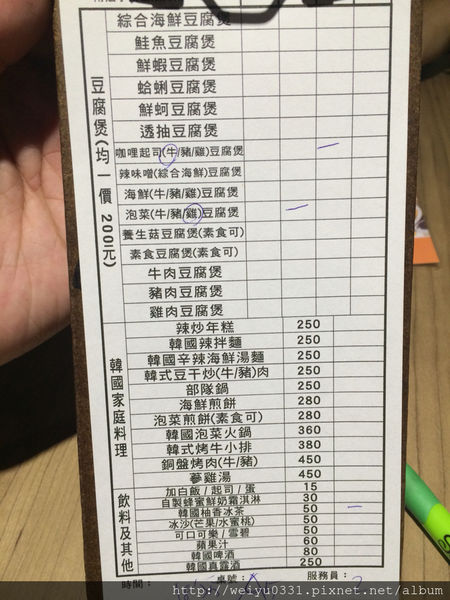 綜合海鮮豆腐煲
鮭魚豆腐煲
鮮蝦豆腐煲
蛤蜊豆腐煲
鮮蚵豆腐煲
透抽豆腐煲
咖哩起司(牛/豬/雞)豆腐煲
辣味噌(綜合海鮮)豆腐煲
海鮮(牛/豬/雞)豆腐煲
泡菜(牛/豬/雞)豆腐煲
養生菇豆腐煲(素食可)
素食豆腐煲(素食可)
牛肉豆腐煲
豬肉豆腐煲
雞肉豆腐煲
豆腐煲(均一價200元)
辣炒年糕 250
韓國辣拌麵 250
韓國辛辣海鮮湯麵 250
韓式豆干炒(牛/豬)肉 250
部隊鍋 250
海鮮煎餅 280
泡菜煎餅(素食可) 280
韓國泡菜火鍋 360
韓式烤牛小排 380
銅盤烤肉(牛/豬) 450
蔘雞湯 450
韓國家庭料理
加白飯/起司/蛋 15
自製蜂蜜鮮奶霜淇淋 30
韓國柚香冰茶 50
冰沙(芒果/水蜜桃) 50
可口可樂/雪碧 50
蘋果汁 60
韓國啤酒 80
韓國真露酒 250
飲料及其他
時間: 桌號: 服務員:
http://weiyu0331.pixnet.net/blog